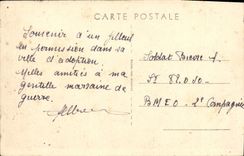 CARTE POSTALE
Souvenir d'un filleul
en permission dans sa
ville d'adoption.
Milles amitiés à ma
gentille marraine de
guerre.
Soldat
SP 82.030
BMEO - 2e Compagnie